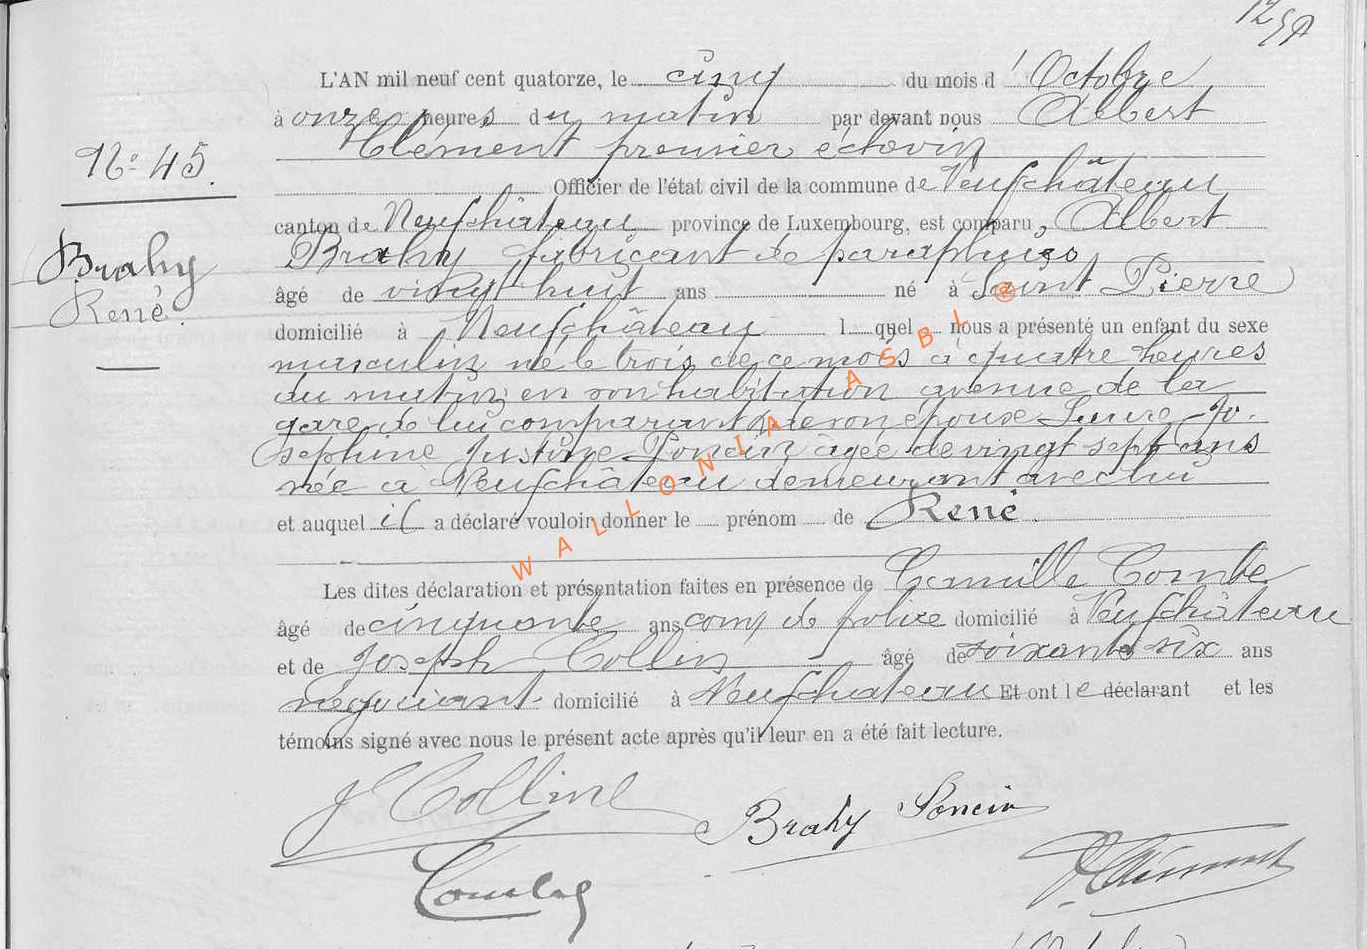 L'AN mil neuf cent quatorze, le cinq du mois d'Octobre
à onze heures du matin par devant nous Albert
Clément premier échevin
N° 45.
Officier de l'état civil de la commune de Neufchâteau
canton de Neufchâteau province de Luxembourg, est comparu, Albert
Brahy fabricant de parapluies
Brahy
René
âgé de vingt huit ans né à Saint Pierre
domicilié à Neufchâteau lequel nous a présenté un enfant du sexe
masculin né le trois de ce mois à quatre heures
du matin en son habitation avenue de la
gare de lui comparant & de son épouse Laure Jo-
sephine Justine Poncin âgée de vingt sept ans
née à Neufchâteau demeurant avec lui
et auquel il a déclaré vouloir donner le prénom de René.
Les dites déclaration et présentation faites en présence de Camille Combe
âgé de cinquante ans com de police domicilié à Neufchâteau
et de Joseph Collin âgé de soixante six ans
négociant domicilié à Neufchateau Et ont le déclarant et les
témoins signé avec nous le présent acte après qu'il leur en a été fait lecture.
J Collin
Brahy Poncin
Clément
WALLONIA ASBL ®